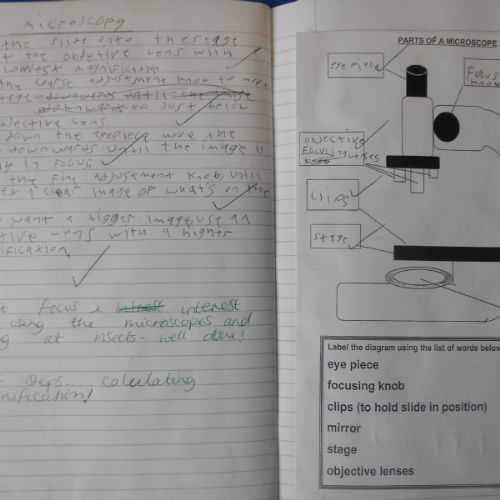 microscopy
the slide onto the stage
t the objetive lens with
lowest magnification
the coarse adjustment knob to move
stage downwards until the image
downwards to just below
bjective lens.
down the eyepiece move the
downwards until the image is
ly in focus
the fine adjustment knob, until
get a clear image of what's on the
want a bigger image, use an
tive lens with a higher
ification
t focus & interest interest
using the microscopes and
g at insects - well done!
t steps.... calculating
nification!
PARTS OF A MICROSCOPE
eye piece
Focus
knob
objective
Focusing lenses
knob
clips
stage
Label the diagram using the list of words below
eye piece
focusing knob
clips (to hold slide in position)
mirror
stage
objective lenses